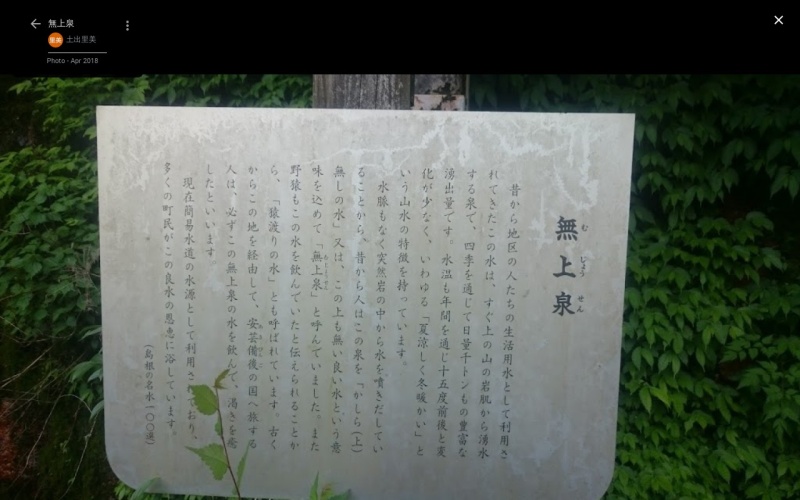 無上泉
里美
土出里美
Photo - Apr 2018
無上泉
む じょう せん
昔から地区の人たちの生活用水として利用さ
れてきたこの水は、すぐ上の山の岩肌から湧水
する泉で、四季を通じて日量千トンもの豊富な
湧出量です。水温も年間を通じ十五度前後と変
化が少なく、いわゆる「夏涼しく冬暖かい」と
いう山水の特徴を持っています。
水脈もなく突然岩の中から水を噴きだしてい
ることから、昔から人はこの泉を「かしら(上)
無しの水」又は、この上も無い良い水という意
味を込めて「無上泉」と呼んでいました。また
野猿もこの水を飲んでいたと伝えられることか
ら、「猿渡りの水」とも呼ばれています。古く
からこの地を経由して、安芸備後の国へ旅する
人は、必ずこの無上泉の水を飲んで、渇きを癒
したといいます。
現在簡易水道の水源として利用されており、
多くの町民がこの良水の恩恵に浴しています。
(島根の名水一〇〇選)